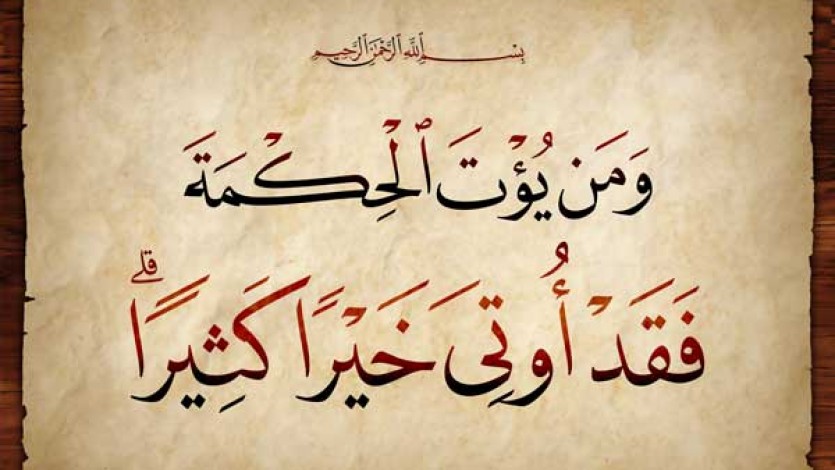 بِسْمِ ٱللَّهِ ٱلرَّحْمَٰنِ ٱلرَّحِيمِ
وَمَن يُؤْتَ ٱلْحِكْمَةَ
فَقَدْ أُوتِىَ خَيْرًا كَثِيرًاۗ